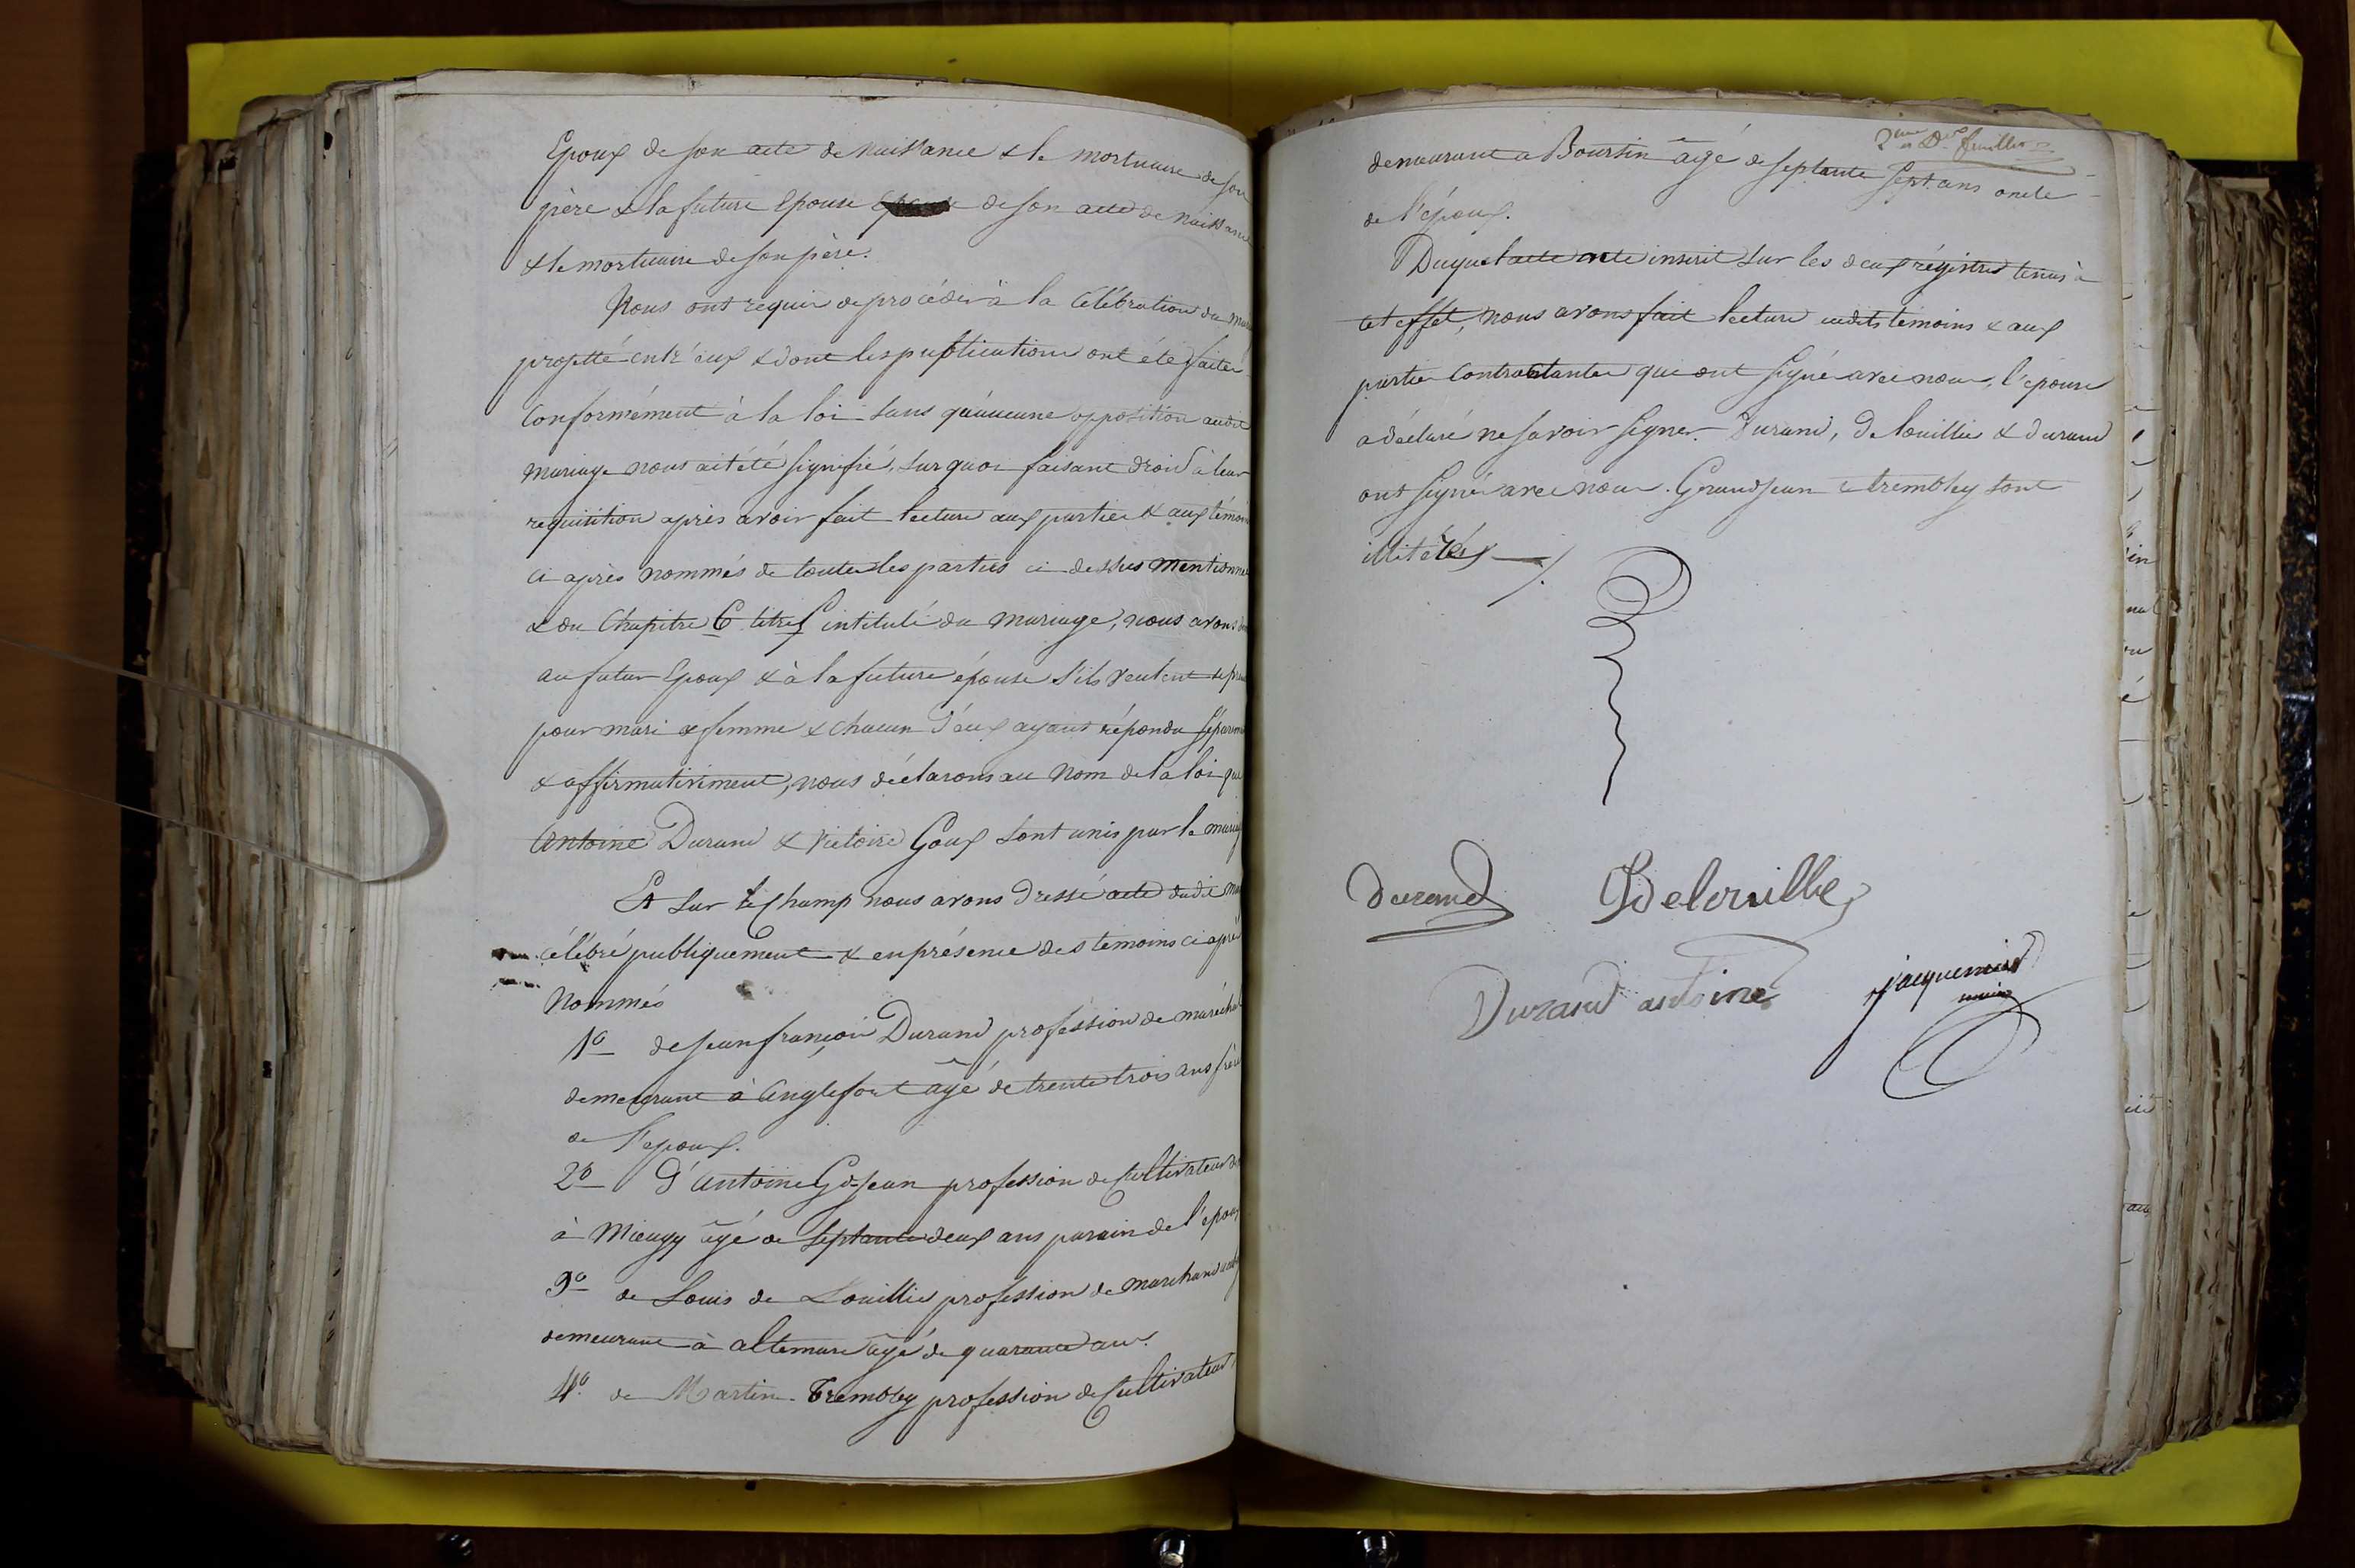 Epoux de son acte de naissance & le mortuaire de son
père & la future Epouse de son acte de naissance
& le mortuaire de son père.
Nous ont requis de procéder à la Célébration du
projetté entr'eux & dont les publications ont été faites
Conformément à la loi sans qu'aucune opposition audit
mariage nous ait été signifié, sur quoi faisant droit à leur
requisition après avoir fait lecture aux parties & aux témoins
ci après nommés de toutes les parties ci dessus mentionnées
& du Chapitre 6 titre 5 intitulé du mariage, nous avons
au futur Epoux & à la future épouse s'ils veulent se
pour mari & femme & chacun d'eux ayant répondu séparém
& affirmativement, nous déclarons au Nom de la loi que
Antoine Durand & Victoire Goux sont unis par le mariag
Et sur le Champ nous avons dressé acte dudit
célébré publiquement & en présence des témoins ci après
Nommés
1º de Jean françois Durand profession de maréchal
demeurant à Anglefort agé de trente trois ans frère
de l'epoux.
2º d'Antoine Gdjean profession de Cultivateur
à Mieugy agé de septante deux ans parain de l'epoux
3º de Louis de Louillie profession de marchand
demeurant à altemare agé de quarante ans.
4º de Martin Trembley profession de Cultivateur
2ime et Der feuillet
demeurant a Boursin agé de septante sept ans oncle
de l'époux.
Duquel acte inscrit sur les deux régistres tenus à
cet effet, nous avons fait lecture audits témoins & aux
parties Contractantes qui ont signé avec nous, l'epouse
a déclaré ne savoir signer. Durand, De louillie & durand
ont signé avec nous. Grandjean & trembley sont
illitérés
Durand Delouille
Durand antoine jacquemind
maire